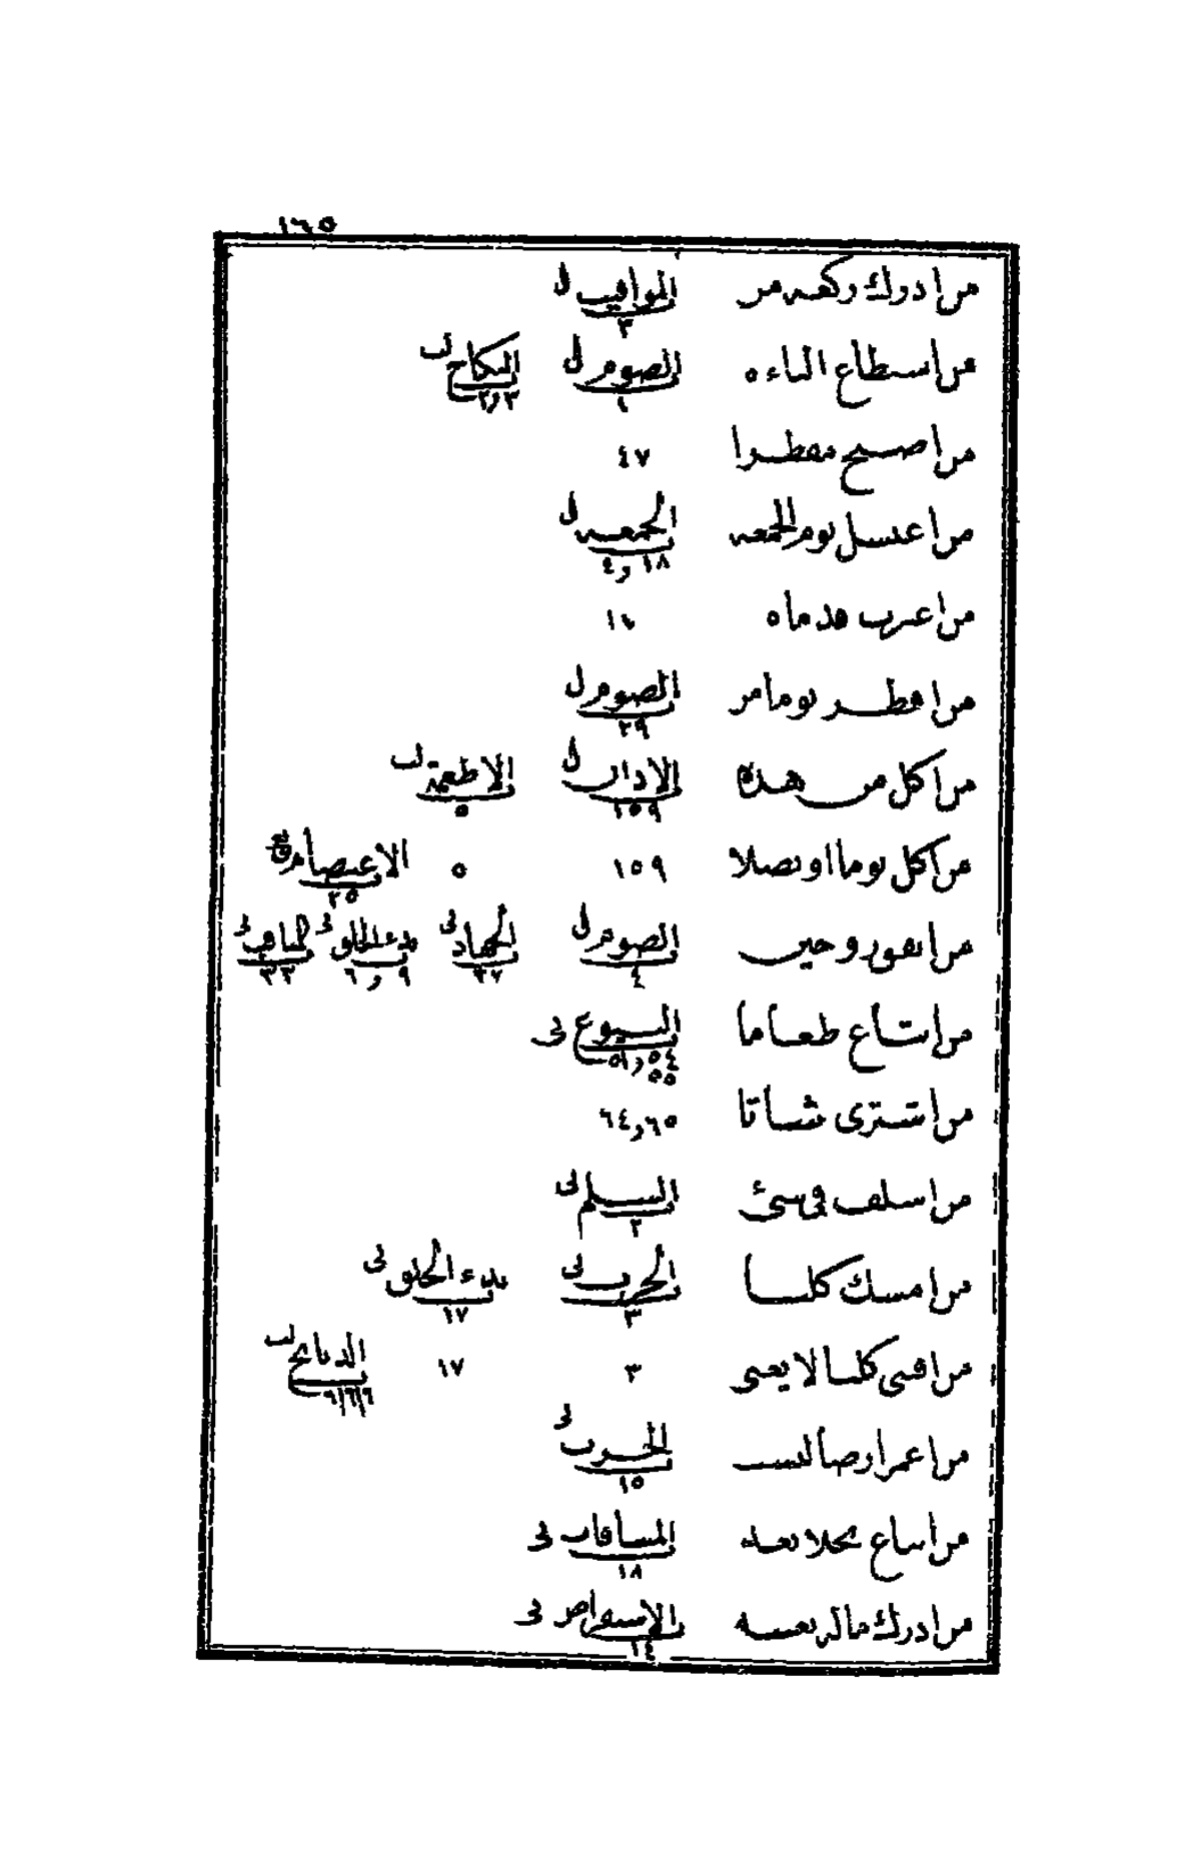 ١٦٥
من ادرك ركعه من المواقيت ل ٣
من استطاع الباءه الصوم ل ١٠ النكاح ٢و٣
من اصبح مفطرا ٤٧
من اغتسل يوم الجمعه الجمعه ل ١٨ و٤
من اغبرت قدماه ١٦
من افطر يوما من الصوم ل ٢٩
من اكل من هذه الاذان ل ١٥٩ الاطعمة ٥
من اكل ثوما او بصلا ١٥٩ ٥ الاعتصام ٢٥
من انفق زوجين الصوم ل ٤ الجهاد ٣٧ بدء الخلق ٩ و٦ المناقب ٣٣
من ابتاع طعاما البيوع ٥٤ و٥١ ٥٥
من اشترى شاتا ٦٥و٦٤
من اسلف فى شئ السلم ٢
من امسك كلبا الحرث ٣ بدء الخلق ١٧
من اقتنى كلبا لا يغنى ٣ ١٧ الذبائح ٦/٦/٦
من اعمر ارضا ليست الحرث ١٥
من ابتاع نخلا بعد المساقات ١٨
من ادرك ماله بعينه الاستقراض ١٤